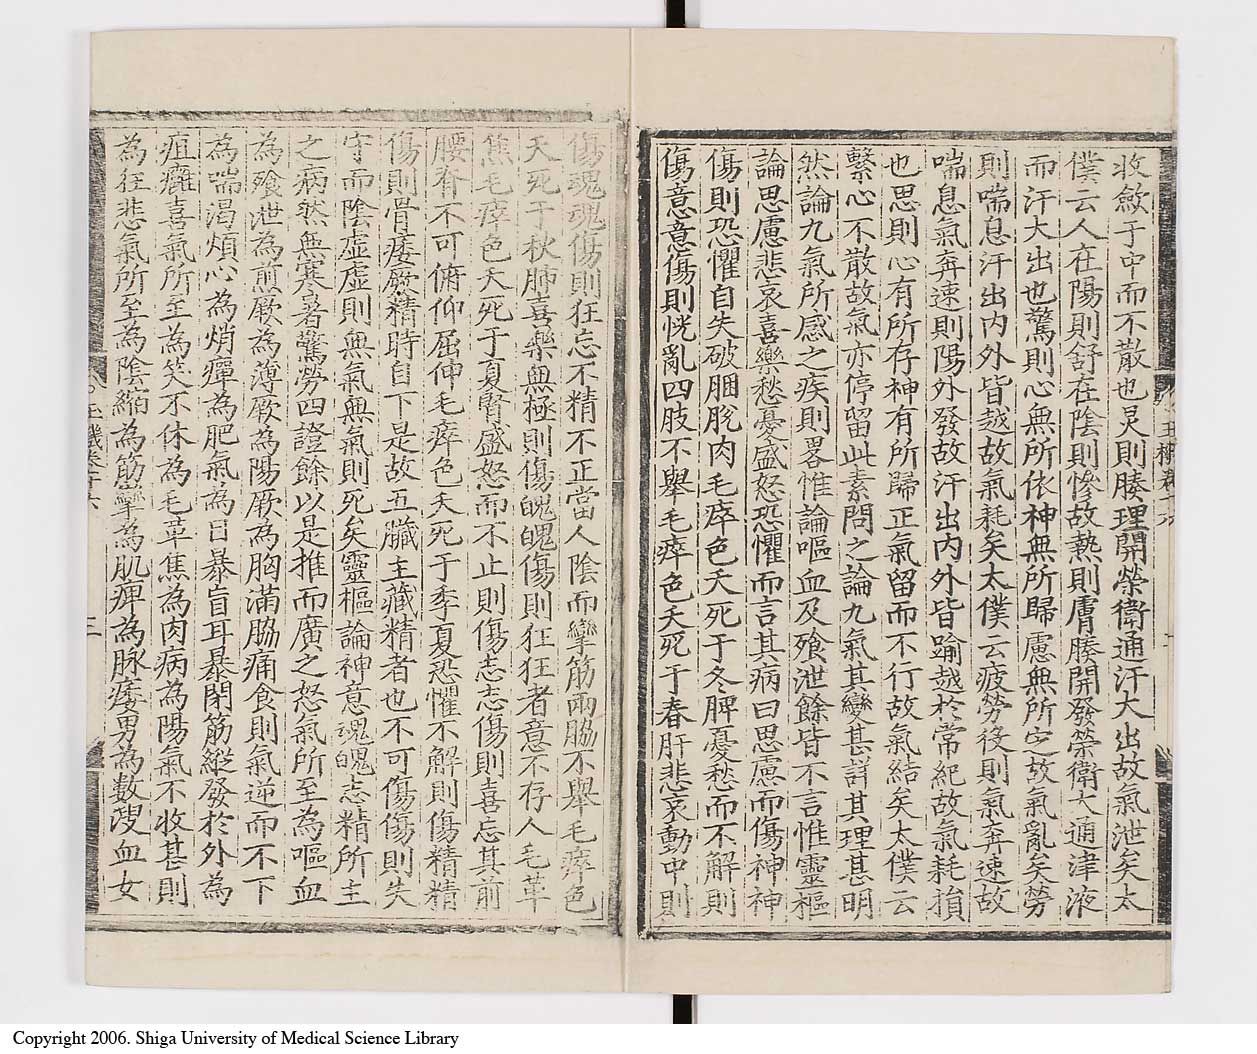 收斂于中而不散也炅則腠理開榮衛通汗大出故氣泄矣太
僕云人在陽則舒在陰則慘故熱則膚腠開發榮衛大通津液
而汗大出也驚則心無所依神無所歸慮無所定故氣亂矣勞
則喘息汗出内外皆越故氣耗矣太僕云疲勞役則氣奔速故
喘息氣奔速則陽外發故汗出内外皆踰越於常紀故氣耗損
也思則心有所存神有所歸正氣留而不行故氣結矣太僕云
繫心不散故氣亦停留此素問之論九氣其變甚詳其理甚明
然論九氣所感之疾則畧惟論嘔血及飱泄餘皆不言惟靈樞
論思慮悲哀喜樂愁憂盛怒恐懼而言其病曰思慮而傷神神
傷則恐懼自失破䐃脫肉毛瘁色夭死于冬脾憂愁而不解則
傷意意傷則恍亂四肢不舉毛瘁色夭死于春肝悲哀動中則
傷魂魂傷則狂忘不精不正當人陰而攣筋兩脇不舉毛瘁色
夭死于秋肺喜樂無極則傷魄魄傷則狂狂者意不存人毛革
焦毛瘁色夭死于夏腎盛怒而不止則傷志志傷則喜忘其前
腰脊不可俯仰屈伸毛瘁色夭死于季夏恐懼不解則傷精精
傷則骨痿厥精時自下是故五臟主藏精者也不可傷傷則失
守而陰虛虛則無氣無氣則死矣靈樞論神意魂魄志精所主
之病然無寒暑驚勞四證餘以是推而廣之怒氣所至為嘔血
為飱泄為煎厥為薄厥為陽厥為胸滿脇痛食則氣逆而不下
為喘渴煩心為焇癉為肥氣為目暴盲耳暴閉筋縱發於外為
疽癰喜氣所至為笑不休為毛革焦為肉病為陽氣不收甚則
為狂悲氣所至為陰縮為筋攣為肌痺為脉痿男為數溲血女
Copyright 2006. Shiga University of Medical Science Library